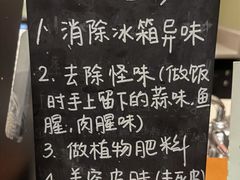 1. 消除冰箱异味
2. 去除怪味(做饭
时手上留下的蒜味,鱼
腥,肉腥味)
3. 做植物肥料
4. 美容皮肤(去死皮)